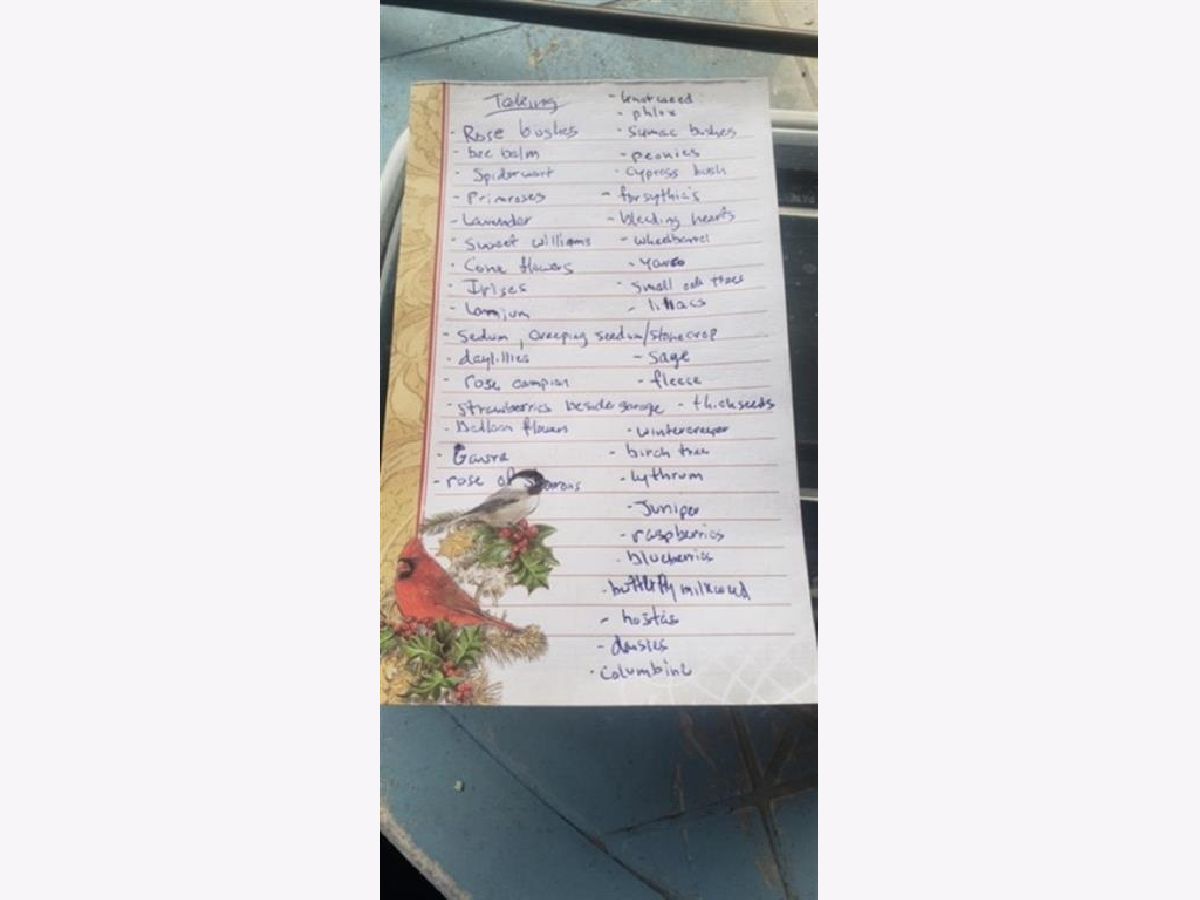 Taking
- Rose bushes
- bee balm
- Spiderwort
- Primroses
- Lavender
- Sweet williams
- Cone flowers
- Irises
- Lamium
- Sedum, Creeping seedum/stonecrop
- daylillies
- rose campion
- strawberries beside garage
- Balloon flowers
- Gaura
- rose of
- knotweed
- phlox
- Sumac bushes
- peonies
- Cypress bush
- forsythia's
- bleeding hearts
- wheelbarrel
- small oak trees
- sage
- fleece
- thickseeds
- wintercreeper
- birch tree
- lythrum
- Juniper
- raspberries
- blueberries
- butterfly milkweed
- hostas
- daisies
- Columbine